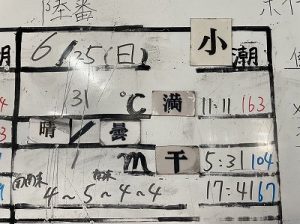 陸番
6/25(日) 小潮
31 ℃ 満 11:11 163
晴/曇
1 m 干 5:31 104
南南東 南東
4~5~4~4 17:41 67